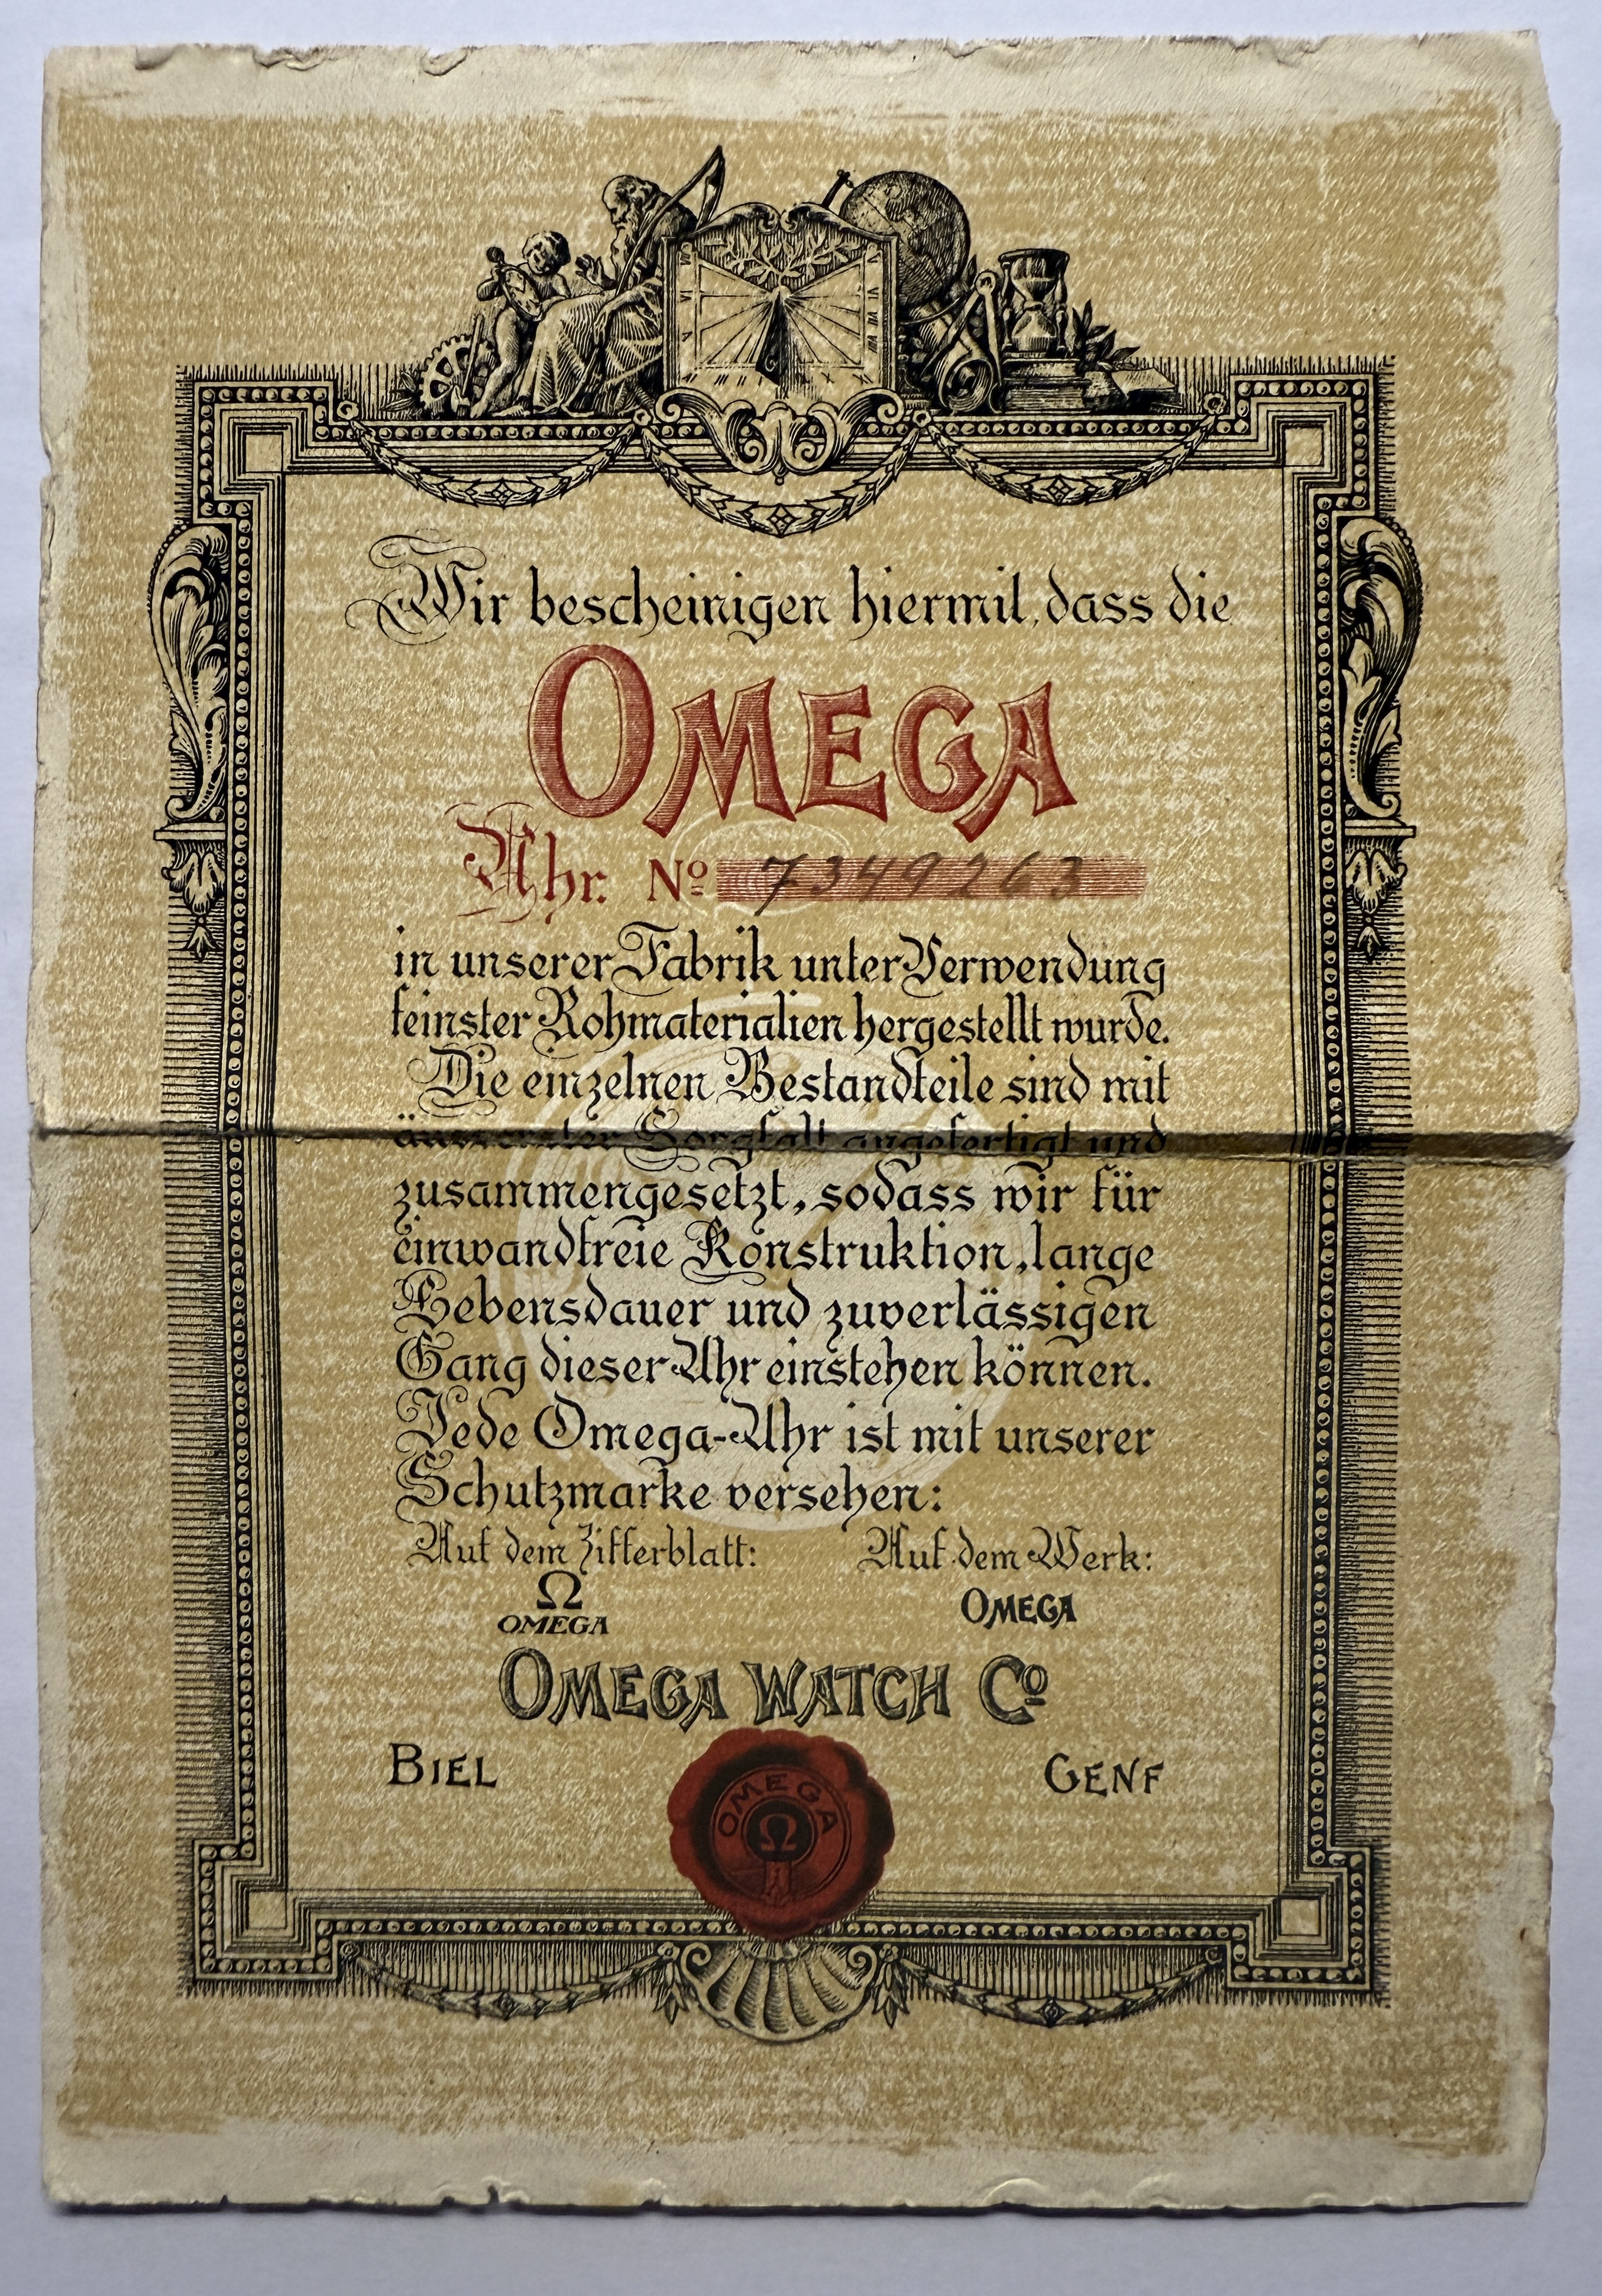 Wir bescheinigen hiermit, dass die
OMEGA
Uhr. Nº 7349263
in unserer Fabrik unter Verwendung
feinster Rohmaterialien hergestellt wurde.
Die einzelnen Bestandteile sind mit
äusserster Sorgfalt angefertigt und
zusammengesetzt, sodass wir für
einwandfreie Konstruktion, lange
Lebensdauer und zuverlässigen
Gang dieser Uhr einstehen können.
Jede Omega-Uhr ist mit unserer
Schutzmarke versehen:
Auf dem Zifferblatt: Auf dem Werk:
Ω
OMEGA OMEGA
OMEGA WATCH Cº
BIEL GENF
OMEGA
Ω